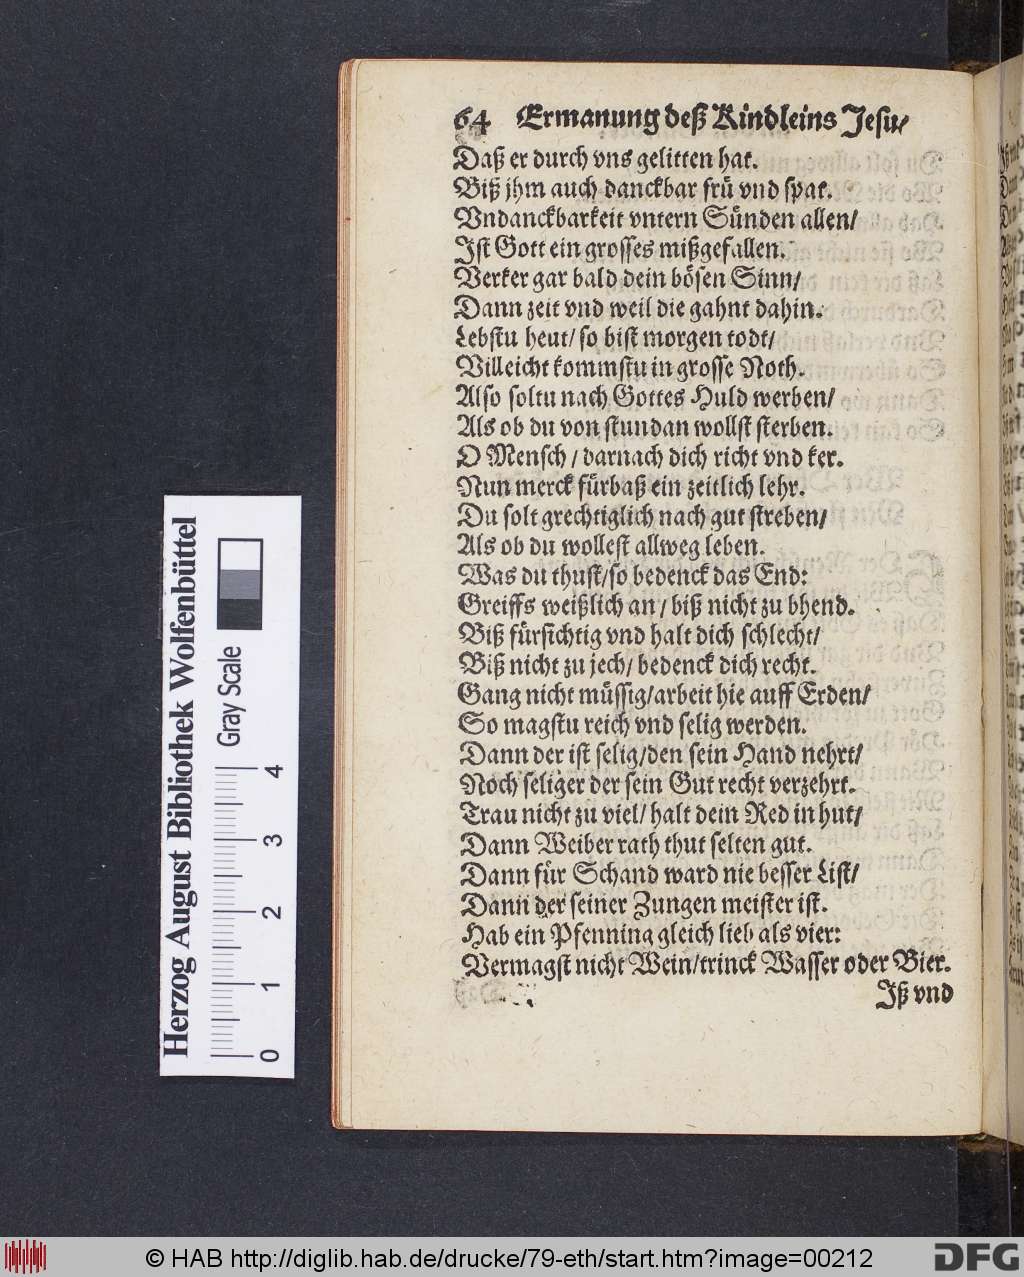 64 Ermanung deß Kindleins Jesu/
Daß er durch vns gelitten hat.
Biß jhm auch danckbar frü vnd spat.
Vndanckbarkeit vntern Sünden allen/
Ist Gott ein grosses mißgefallen.
Verker gar bald dein bösen Sinn/
Dann zeit vnd weil die gahnt dahin.
Lebstu heut/ so bist morgen todt/
Villeicht kommstu in grosse Noth.
Also soltu nach Gottes Huld werben/
Als ob du von stundan wollst sterben.
O Mensch / darnach dich richt vnd ker.
Nun merck fürbaß ein zeitlich lehr.
Du solt grechtiglich nach gut streben/
Als ob du wollest allweg leben.
Was du thust/so bedenck das End:
Greiffs weißlich an / biß nicht zu bhend.
Biß fürsichtig vnd halt dich schlecht/
Biß nicht zu jech/ bedenck dich recht.
Gang nicht müssig/arbeit hie auff Erden/
So magstu reich vnd selig werden.
Dann der ist selig/den sein Hand nehrt/
Noch seliger der sein Gut recht verzehrt.
Trau nicht zu viel/ halt dein Red in hut/
Dann Weiber rath thut selten gut.
Dann für Schand ward nie besser List/
Dann der seiner Zungen meister ist.
Hab ein Pfenning gleich lieb als vier:
Vermagst nicht Wein/trinck Wasser oder Bier.
Iß vnd
Herzog August Bibliothek Wolfenbüttel
Gray Scale
0 1 2 3 4
© HAB http://diglib.hab.de/drucke/79-eth/start.htm?image=00212
DFG